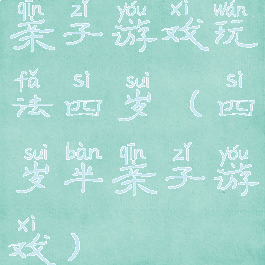 qīn zǐ yóu xì wán
亲子游戏玩
fǎ sì suì sì
法四岁（四
suì bàn qīn zǐ yóu
岁半亲子游
xì
戏）